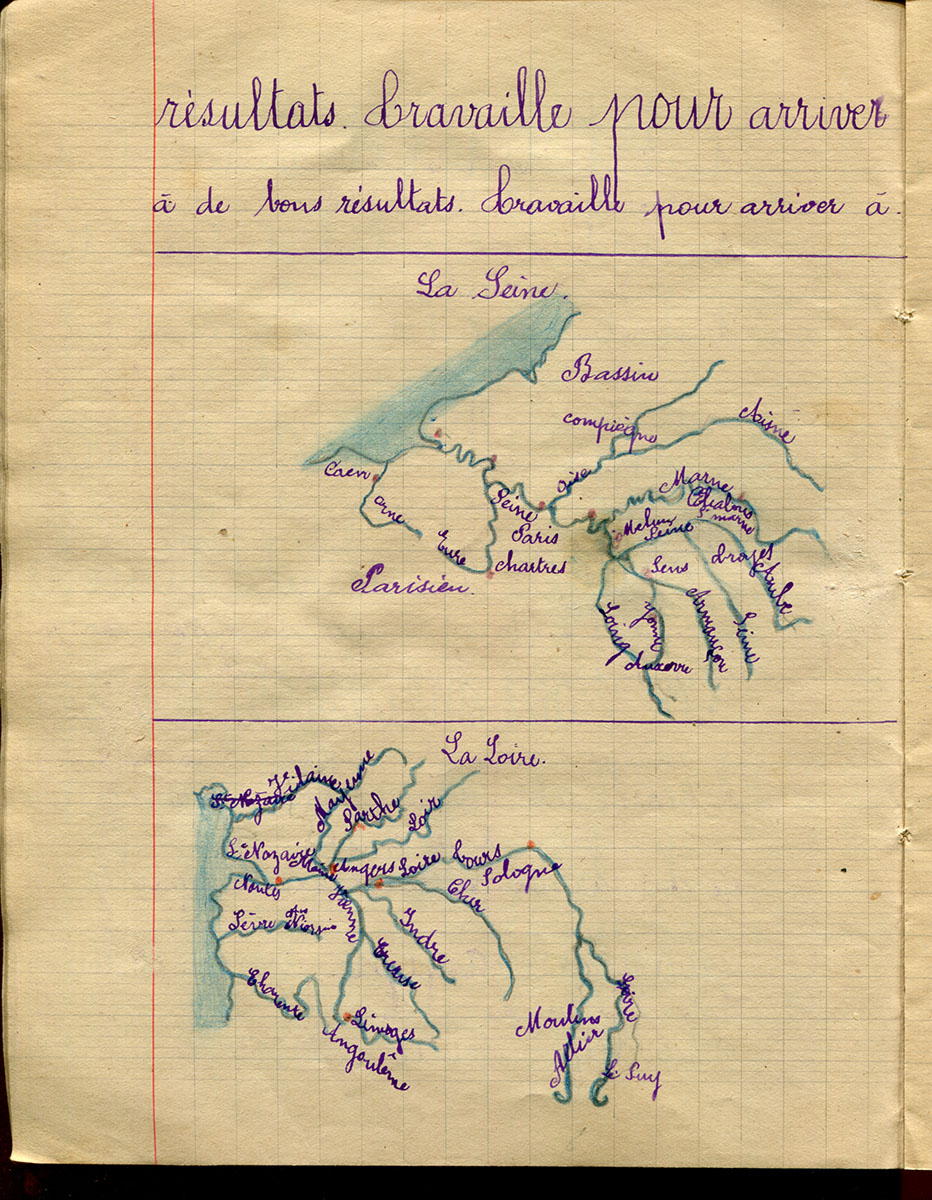 résultats. Travaille pour arriver
à de bons résultats. Travaille pour arriver à.
La Seine.
Bassin
compiègne
Aisne
Oise
Marne
Chalons
s marne
Caen
orne
Seine
Paris
Melun
Seine
Eure
chartres
Parisien.
Sens
Troyes
Aube
Loing
Yonne
Armançon
Seine
Auxerre
La Loire.
St Nazaire
Vilaine
Mayenne
Sarthe
Loir
St Nazaire
Maine
Angers
Loire
Tours
Sologne
Nantes
Vienne
Cher
Sèvre Niortaise
Indre
Creuse
Charente
Limoges
Angoulême
Moulins
Allier
Loire
Le Puy